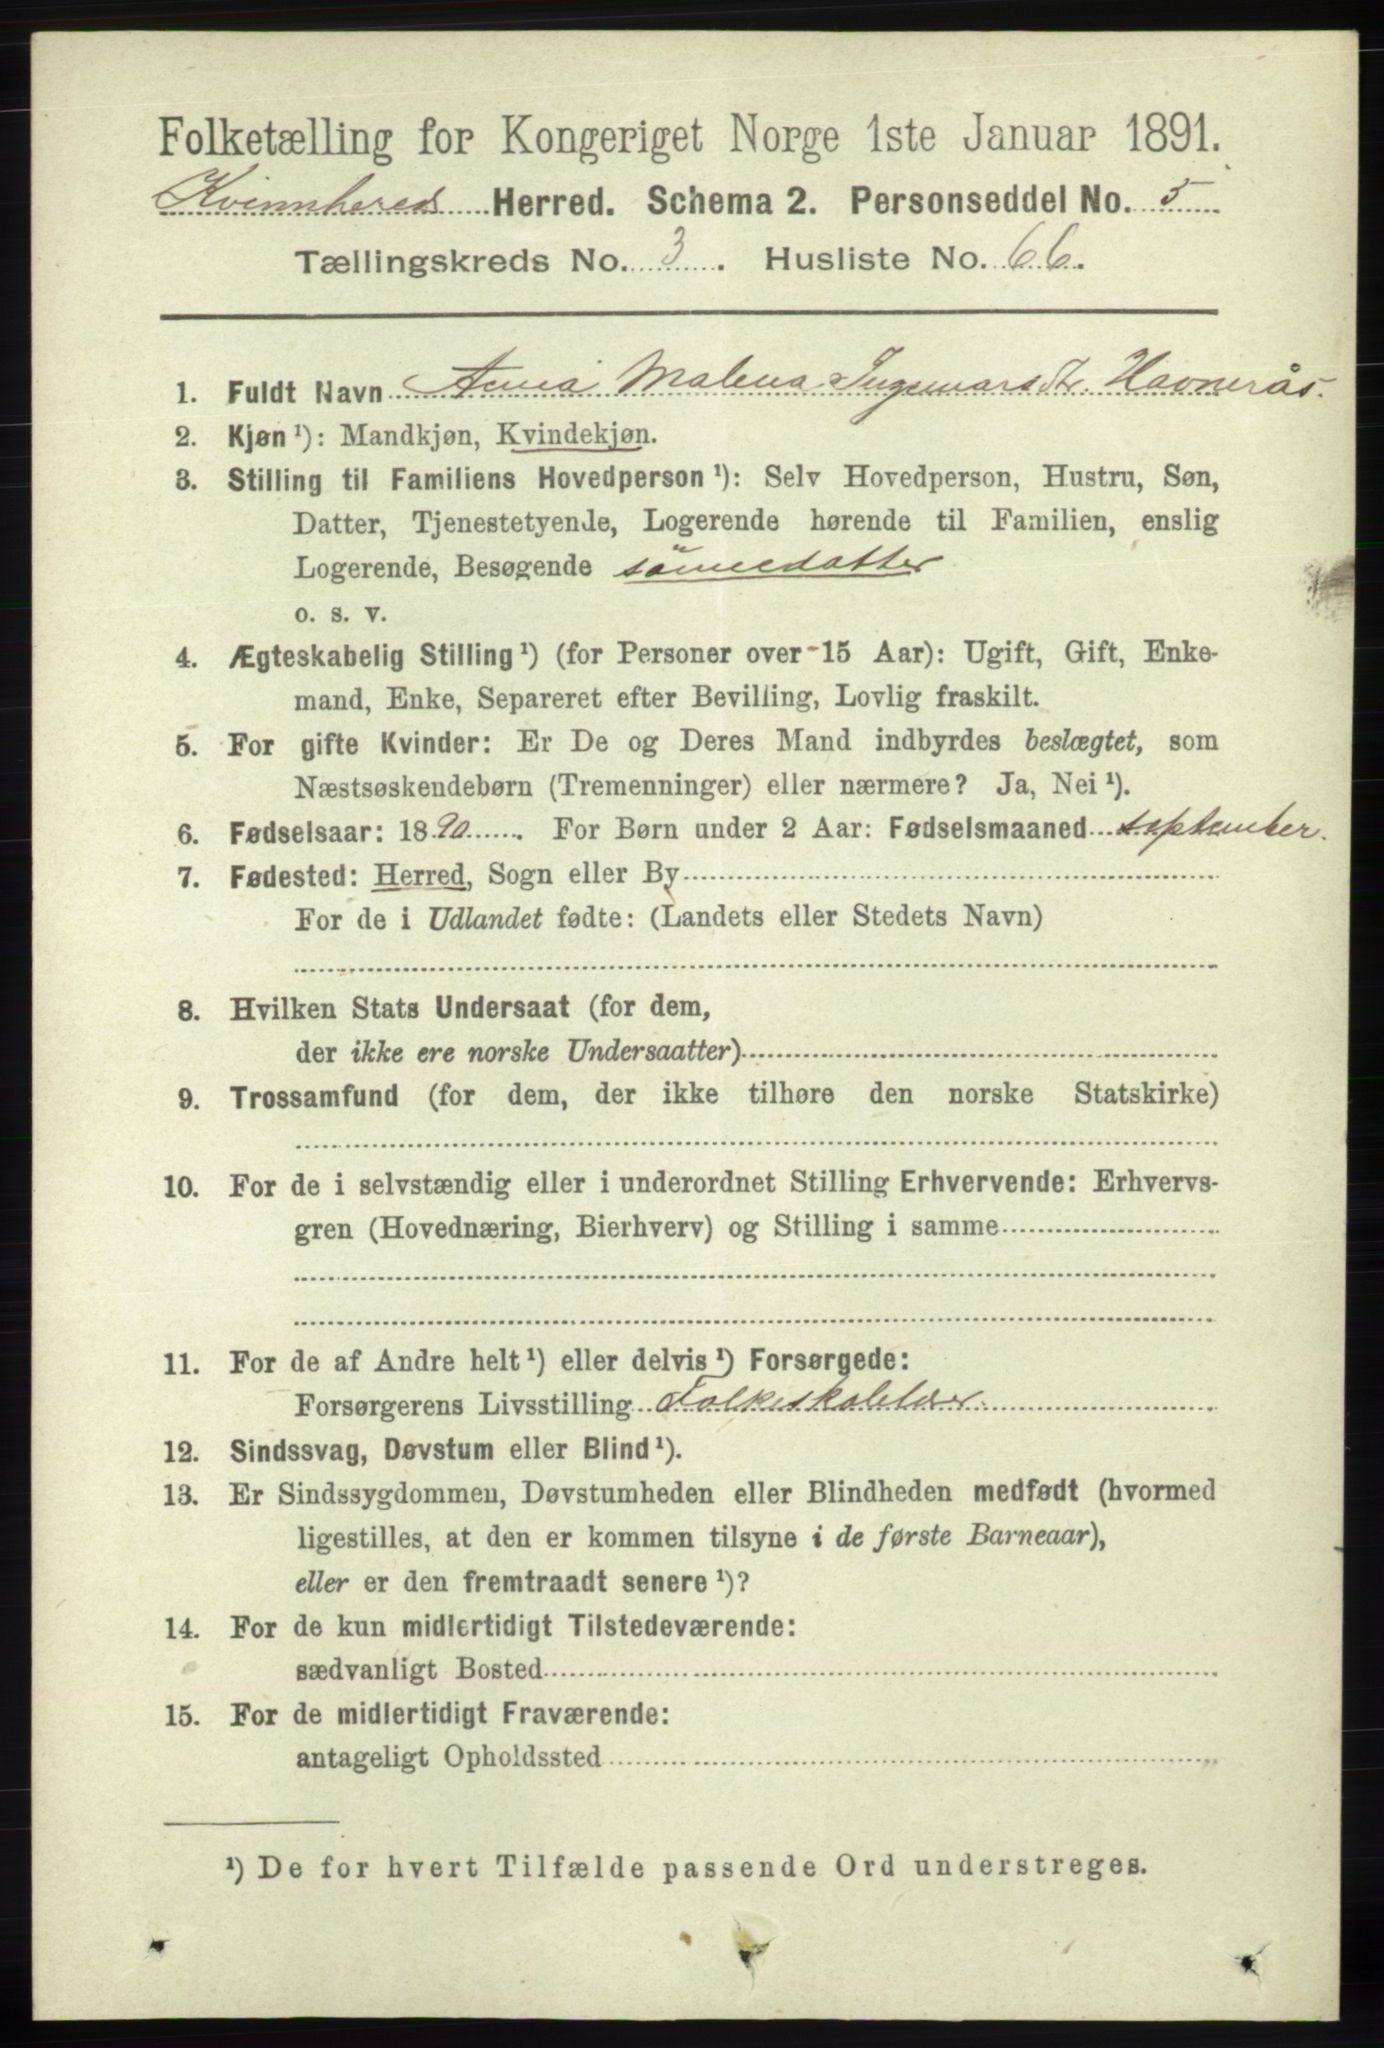 Folketælling for Kongeriget Norge 1ste Januar 1891.
Kvinnhereds Herred. Schema 2. Personseddel No. 5
Tællingskreds No. 3. Husliste No. 66.
1. Fuldt Navn Anna Malena Ingemarsdtr. Havnerås.
2. Kjøn ¹): Mandkjøn, Kvindekjøn.
3. Stilling til Familiens Hovedperson ¹): Selv Hovedperson, Hustru, Søn,
Datter, Tjenestetyende, Logerende hørende til Familien, enslig
Logerende, Besøgende sönnedatter
o. s. v.
4. Ægteskabelig Stilling ¹) (for Personer over 15 Aar): Ugift, Gift, Enke-
mand, Enke, Separeret efter Bevilling, Lovlig fraskilt.
5. For gifte Kvinder: Er De og Deres Mand indbyrdes beslægtet, som
Næstsøskendebørn (Tremenninger) eller nærmere? Ja, Nei ¹).
6. Fødselsaar: 1890. For Børn under 2 Aar: Fødselsmaaned september.
7. Fødested: Herred, Sogn eller By
For de i Udlandet fødte: (Landets eller Stedets Navn)
8. Hvilken Stats Undersaat (for dem,
der ikke ere norske Undersaatter)
9. Trossamfund (for dem, der ikke tilhøre den norske Statskirke)
10. For de i selvstændig eller i underordnet Stilling Erhvervende: Erhvervs-
gren (Hovednæring, Bierhverv) og Stilling i samme
11. For de af Andre helt ¹) eller delvis ¹) Forsørgede:
Forsørgerens Livsstilling Folkeskolelær.
12. Sindssvag, Døvstum eller Blind ¹).
13. Er Sindssygdommen, Døvstumheden eller Blindheden medfødt (hvormed
ligestilles, at den er kommen tilsyne i de første Barneaar),
eller er den fremtraadt senere ¹)?
14. For de kun midlertidigt Tilstedeværende:
sædvanligt Bosted
15. For de midlertidigt Fraværende:
antageligt Opholdssted
¹) De for hvert Tilfælde passende Ord understreges.